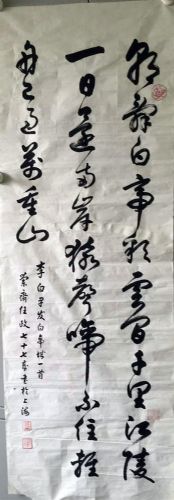 朝辭白帝彩雲間千里江陵
一日還兩岸猿聲啼不住輕
舟已過萬重山
李白早发白帝城一首
蘭齋任政七十七歲書於上海